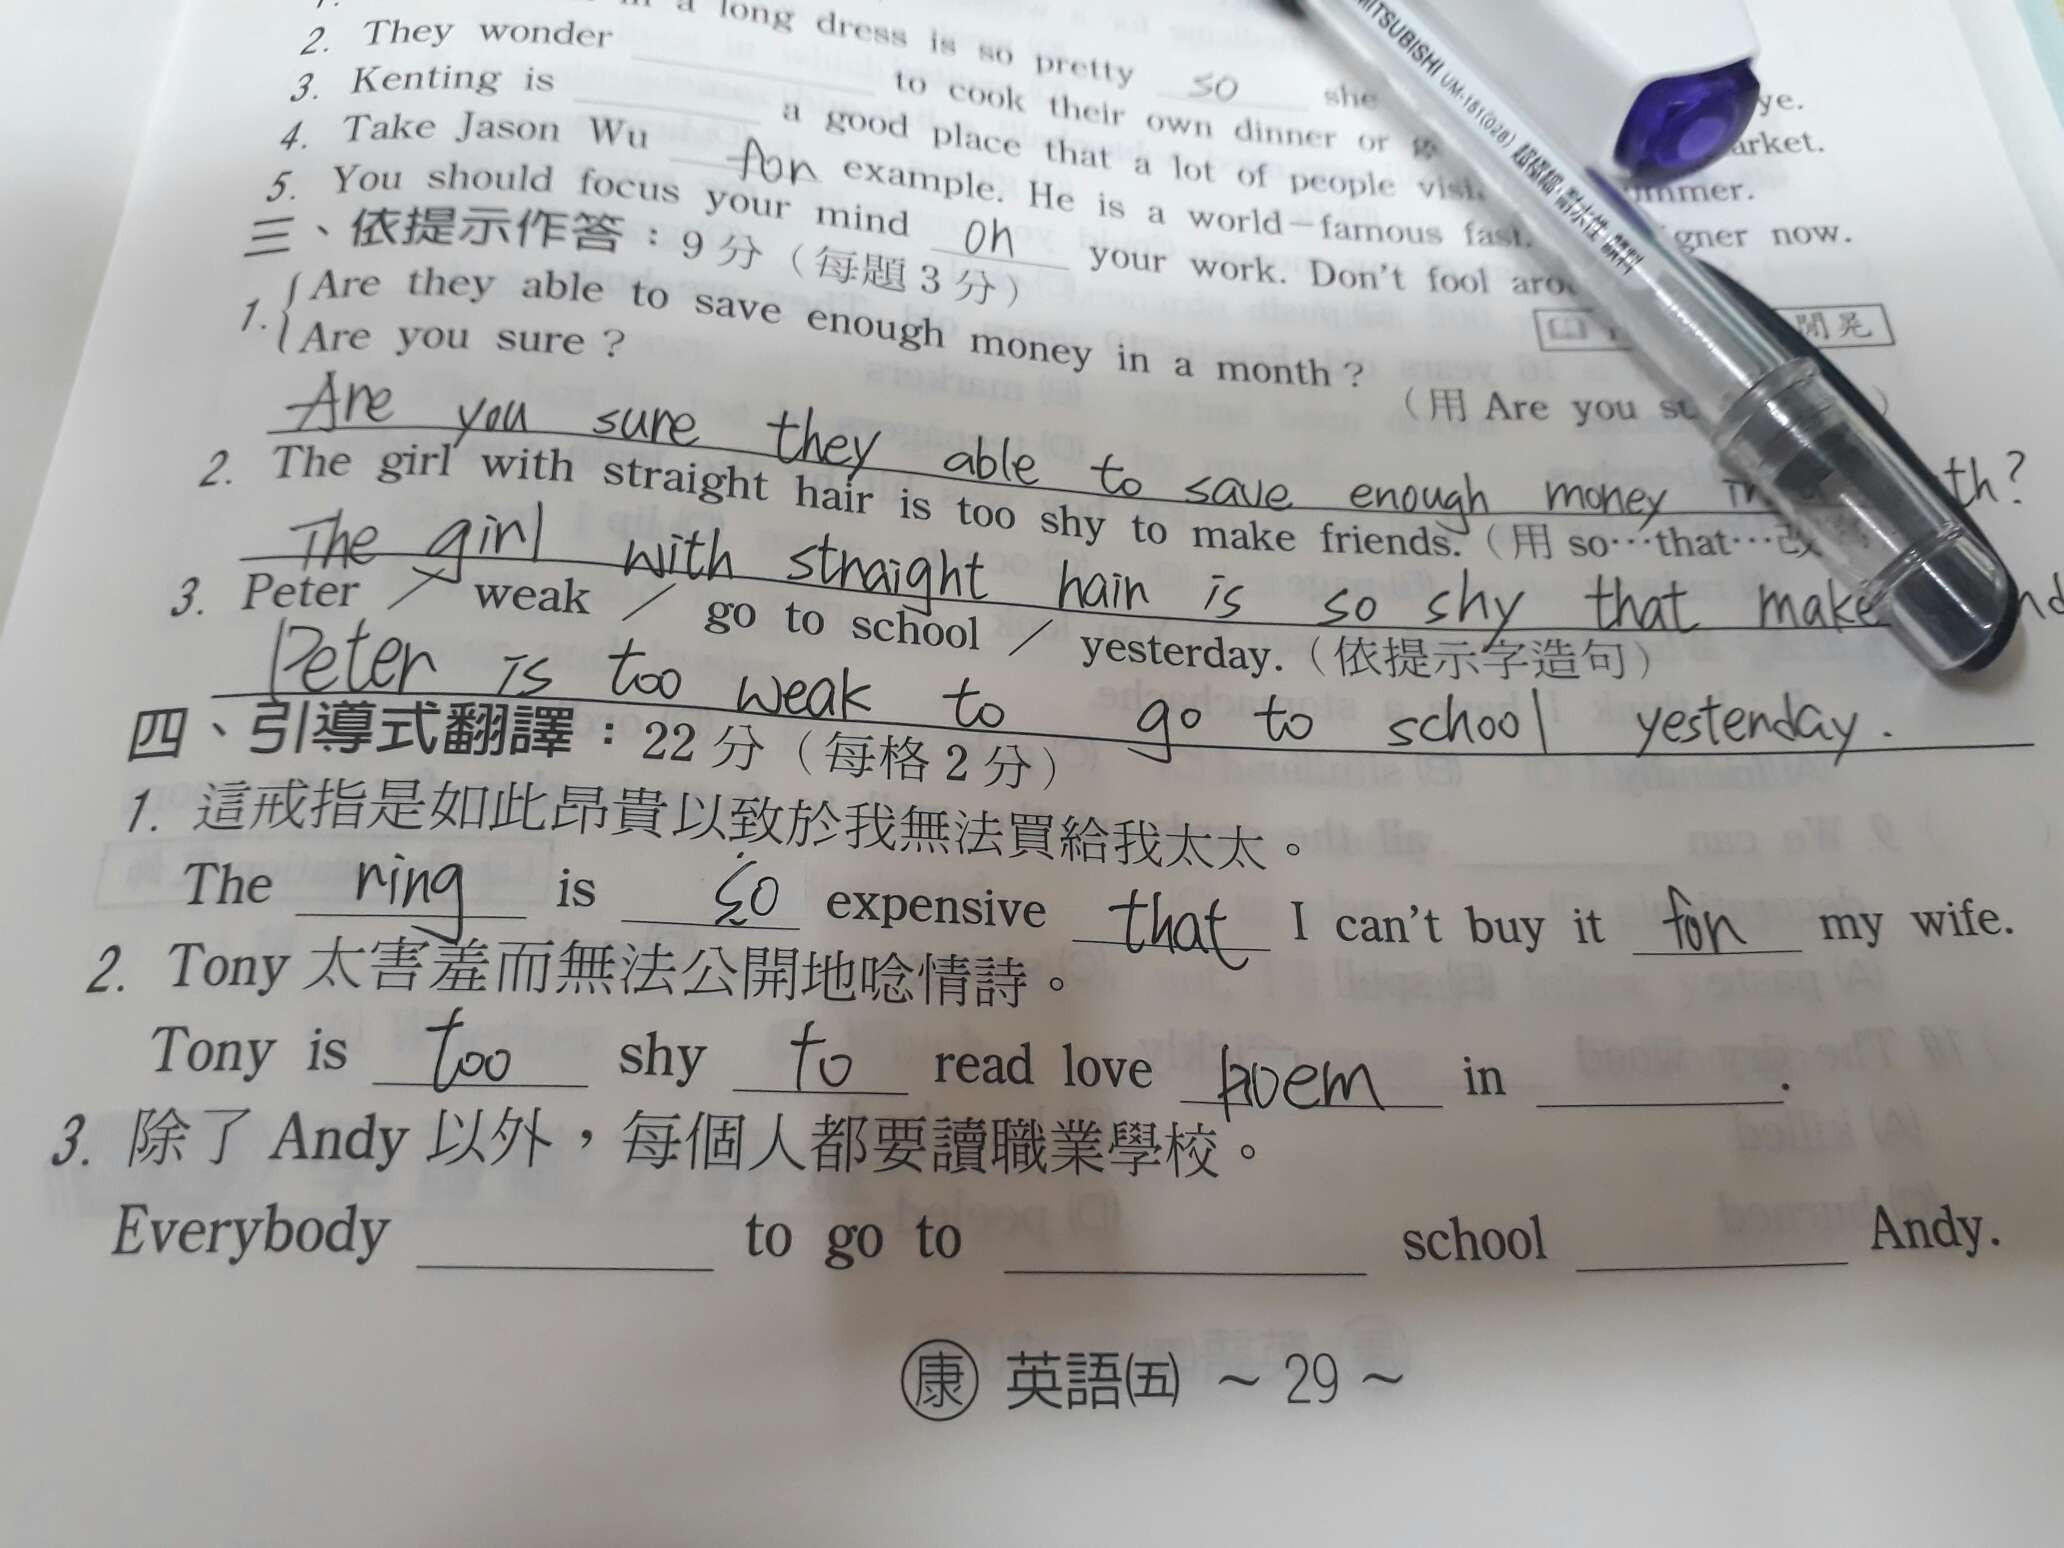 a long dress is so pretty so she ye.
2. They wonder to cook their own dinner or arket.
3. Kenting is a good place that a lot of people ummer.
4. Take Jason Wu for example. He is a world-famous gner now.
5. You should focus your mind on your work. Don't fool
三、依提示作答：9分（每題3分）
閒晃
1. Are they able to save enough money in a month?
Are you sure?
（用 Are you
Are you sure they able to save enough money th?
2. The girl with straight hair is too shy to make friends.（用 so…that…改
The girl with straight hair is so shy that make
3. Peter ／ weak ／ go to school ／ yesterday.（依提示字造句）
Peter is too weak to go to school yesterday.
四、引導式翻譯：22分（每格2分）
1. 這戒指是如此昂貴以致於我無法買給我太太。
The ring is so expensive that I can't buy it for my wife.
2. Tony 太害羞而無法公開地唸情詩。
Tony is too shy to read love poem in .
3. 除了 Andy 以外，每個人都要讀職業學校。
Everybody to go to school Andy.
康 英語㈤ ～29～
MITSUBISHI UM-151(028) 超極細・耐水性